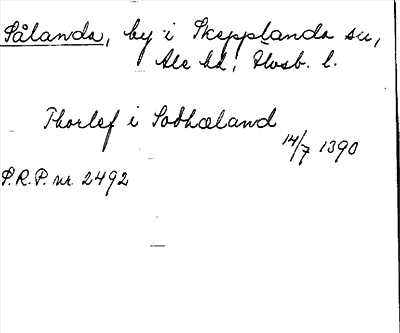 Sålanda, by i Skepplanda sn,
Ale hd, Älvsb. l.
Thorlef i Sodhæland
14/7 1390
S.R.P. nr 2492